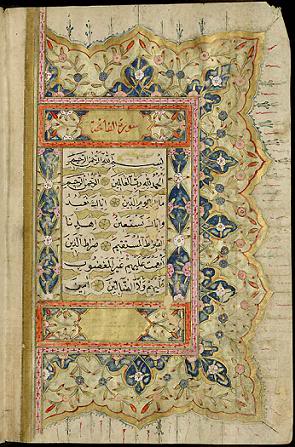 سورة الفاتحة
بسم الله الرحمن الرحيم
الحمد لله رب العالمين الرحمن الرحيم
مالك يوم الدين اياك نعبد
واياك نستعين اهدنا
الصراط المستقيم صراط الذين
انعمت عليهم غير المغضوب
عليهم ولا الضالين امين